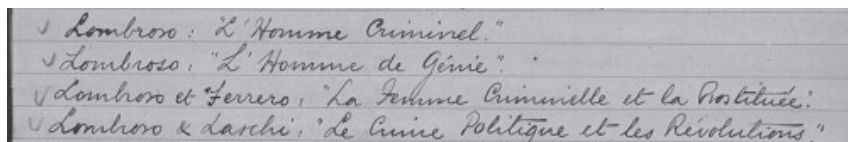 √ Lombroso: "L'Homme Criminel."
√ Lombroso: "L'Homme de Génie".
√ Lombroso et Ferrero: "La Femme Criminelle et la Prostituée."
√ Lombroso & Laschi: "Le Crime Politique et les Révolutions."